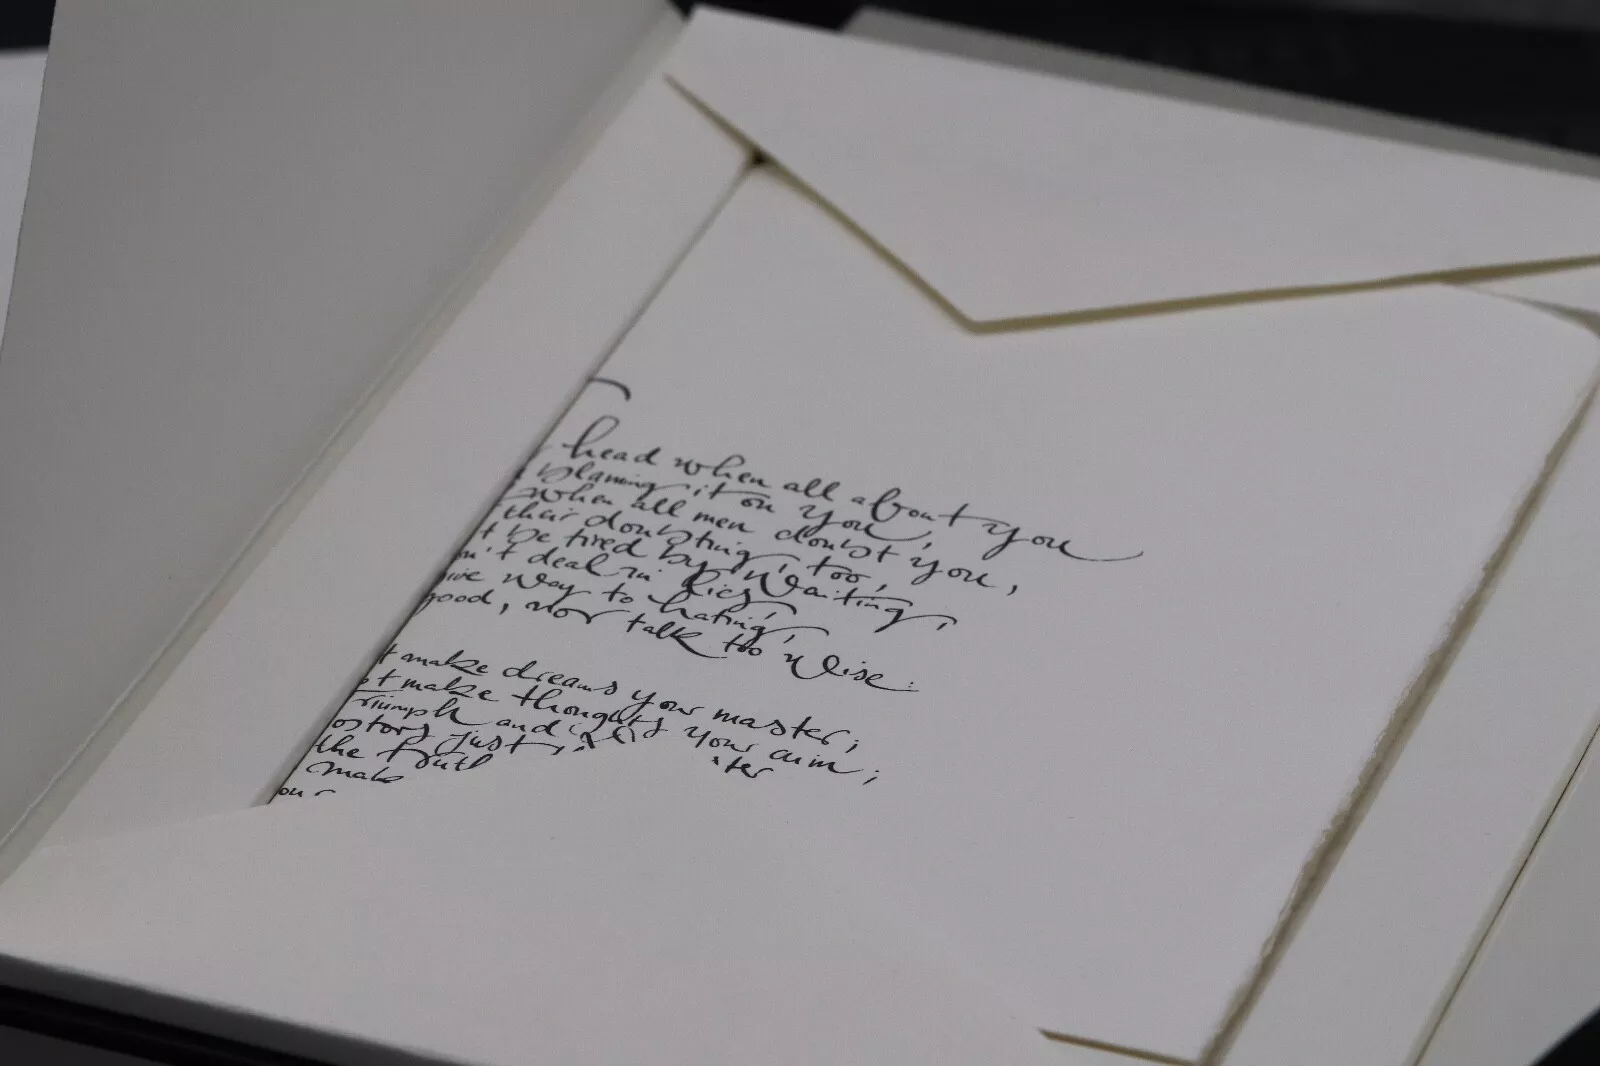 head when all about you
blaming it on you,
when all men doubt you,
their doubting, too,
t be tired by waiting,
n't deal in lies,
ive way to hating,
good, nor talk too wise:
t make dreams your master;
t make thoughts your aim;
Triumph and
just
the truth
make